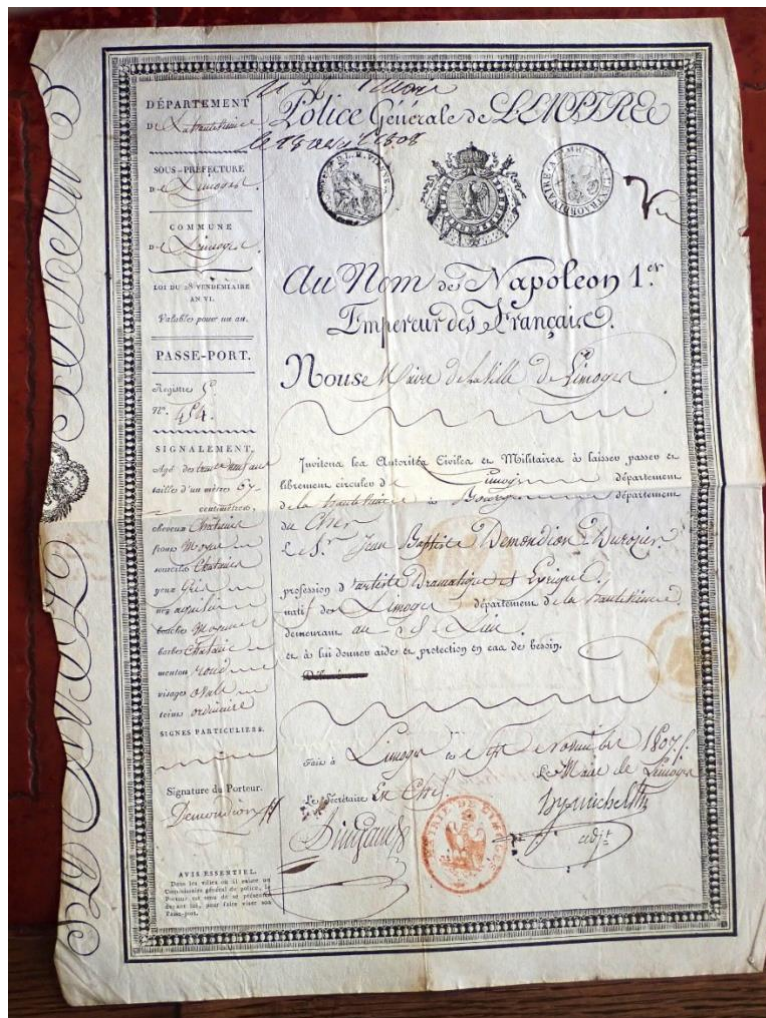 DÉPARTEMENT
SOUS-PRÉFECTURE
de Limoges.
COMMUNE
de Limoges
LOI DU 28 VENDÉMIAIRE
AN VI.
Valable pour un an.
PASSE-PORT.
Registre 5e
N°. 454.
SIGNALEMENT.
taille d'un mètre 67
centimètres,
cheveux Chatains
front Moyen
sourcils Chatains
yeux Gris
nez aquilin
bouche Moyenne
barbe Chataine
menton rond
visage ovale
teint ordinaire
SIGNES PARTICULIERS.
Signature du Porteur.
Demondion
AVIS ESSENTIEL.
Dans les villes où il existe un
Commissaire général de police, le
Porteur est tenu de se présenter
devant lui, pour faire viser son
Passe-port.
Police Générale de L'EMPIRE
1808
EXTRAORDINAIRE
Vu
Au Nom de Napoleon 1.er
Empereur des Français.
Nous Maire de la Ville de Limoges
Invitons les Autorités Civiles et Militaires à laisser passer et
librement circuler de Limoges département
de la haute Vienne à Bourges département
du Cher
Le Sr. Jean Baptiste Demondion Durozier
profession d'artiste Dramatique et Lyrique.
natif de Limoges département de la haute Vienne
demeurant au dt. Lieu
et à lui donner aide et protection en cas de besoin.
Fait à Limoges le novembre 1807
Le Secrétaire En Chef.
Le Maire de Limoges
adjt
MAIRIE DE LIMOGES